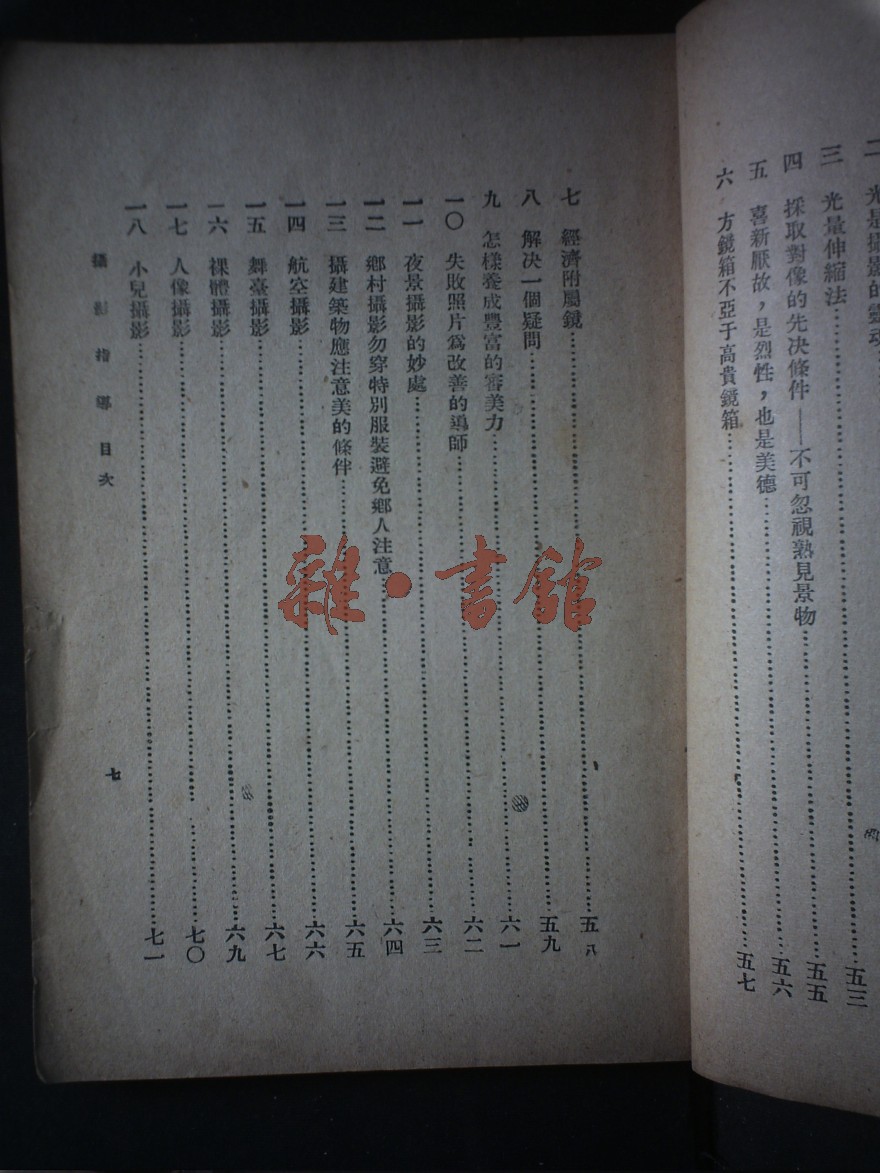 二 光是攝影的靈魂 五三
三 光量伸縮法 五五
四 採取對像的先决條件——不可忽視熟見景物 五六
五 喜新厭故，是烈性，也是美德
六 方鏡箱不亞于高貴鏡箱 五七
七 經濟附屬鏡 五八
八 解決一個疑問 五九
九 怎樣養成豐富的審美力 六一
一〇 失敗照片爲改善的導師 六二
一一 夜景攝影的妙處 六三
一二 鄉村攝影勿穿特別服裝避免鄉人注意 六四
一三 攝建築物應注意美的條件 六五
一四 航空攝影 六六
一五 舞臺攝影 六七
一六 裸體攝影 六九
一七 人像攝影 七〇
一八 小兒攝影 七一
攝影指導目次
七
雜·書館